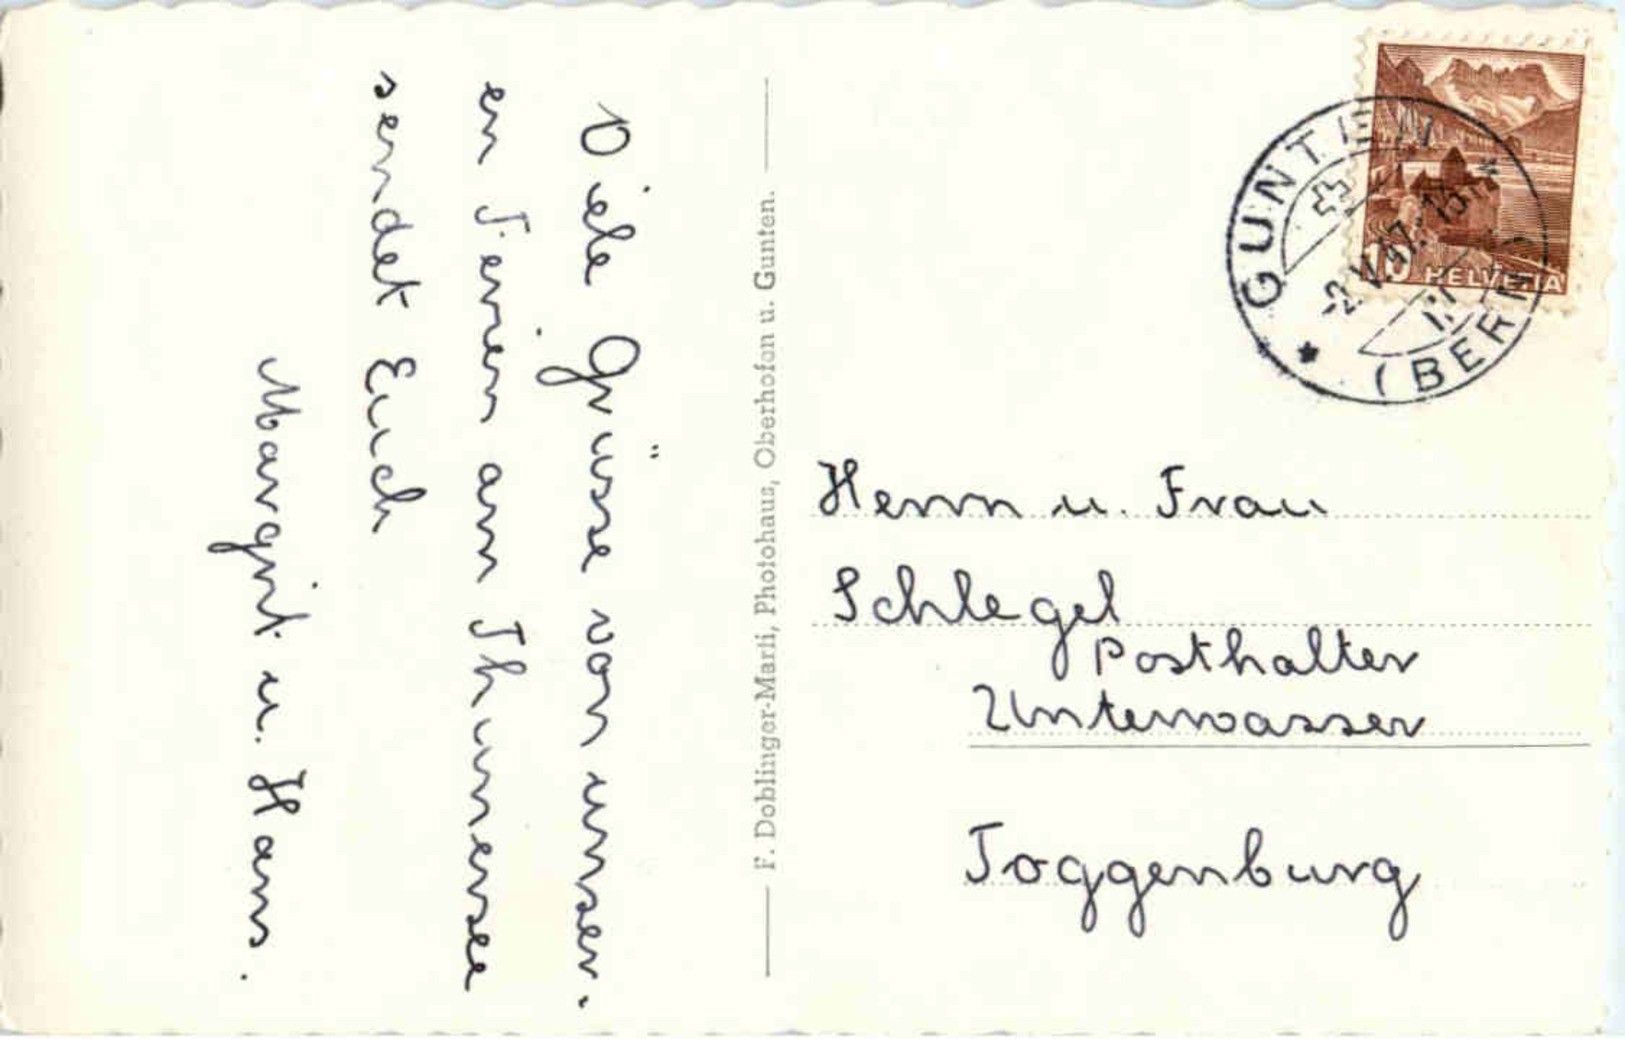 Viele Grüsse von unser.
en Ferien am Thunersee
sendet Euch
Margrit u. Hans.
F. Doblinger-Marti, Photohaus, Oberhofen u. Gunten.
GUNTEN
-2.V.47.-18
(BERN)
10 HELVETIA
Herrn u. Frau
Schlegel
Posthalter
Unterwasser
Toggenburg